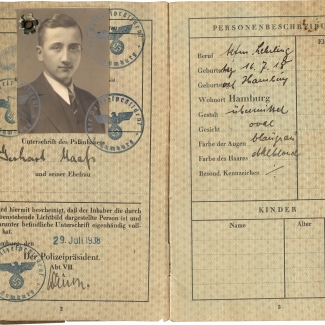 Unterschrift des Paßinhabers
Gerhart Maaß
und seiner Ehefrau
wird hiermit bescheinigt, daß der Inhaber die durch
nebenstehende Lichtbild dargestellte Person ist und
darunter befindliche Unterschrift eigenhändig voll-
hat.
burg, den 29. Juli 1938
Der Polizeipräsident.
Abt VII
2
PERSONENBESCHREIBUNG
Beruf
Geburtstag 16.7.18
Geburtsort Hamburg
Wohnort Hamburg
Gestalt
Gesicht oval
Farbe der Augen blaugrau
Farbe des Haares dklblond
Besond. Kennzeichen
KINDER
Name
Alter
3